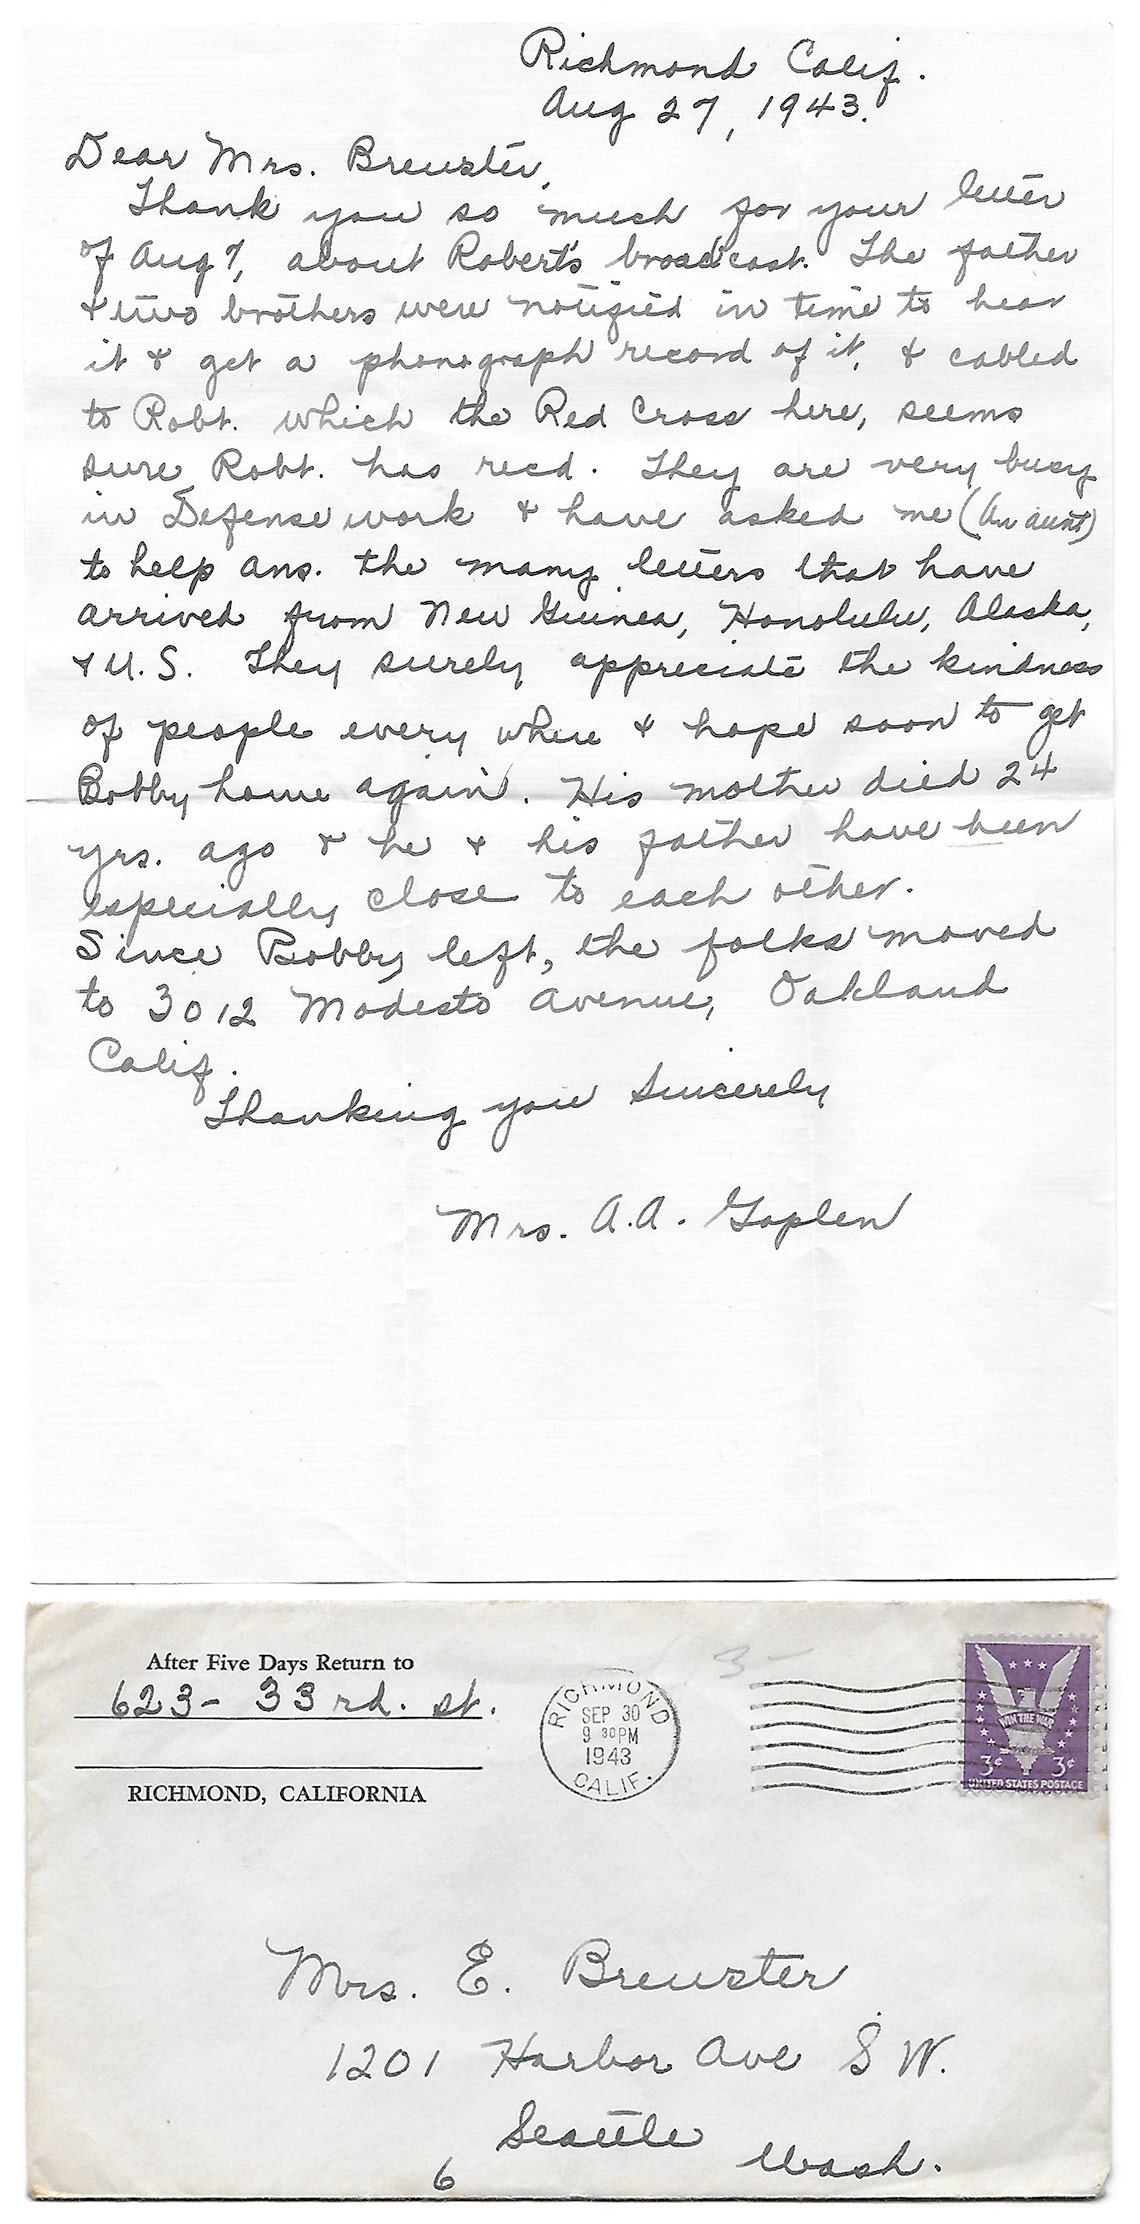 Richmond Calif.
Aug 27, 1943.
Dear Mrs. Brewster,
Thank you so much for your letter
of Aug 7, about Robert's broadcast. The father
& two brothers were notified in time to hear
it & get a phonograph record of it, & cabled
to Robt. which the Red Cross here, seems
sure Robt. has recd. They are very busy
in Defense work & have asked me (An aunt)
to help ans. the many letters that have
arrived from New Guinea, Honolulu, Alaska,
& U.S. They surely appreciate the kindness
of people every where & hope soon to get
Bobby home again. His mother died 24
yrs. ago & he & his father have been
especially close to each other.
Since Bobby left, the folks moved
to 3012 Modesto Avenue, Oakland
Calif.
Thanking you Sincerely
Mrs. A.A. Goplen
After Five Days Return to
623 - 33rd. st.
RICHMOND, CALIFORNIA
3-
RICHMOND
SEP 30
9 30 PM
1943
CALIF.
WIN THE WAR
3¢ 3¢
UNITED STATES POSTAGE
Mrs. E. Brewster
1201 Harbor Ave S W.
Seattle
Wash.
6